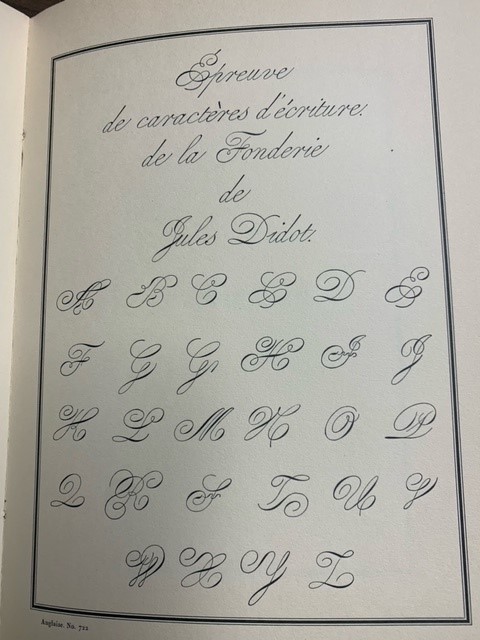 Épreuve
de caractères d'écriture.
de la Fonderie
de
Jules Didot.
A B C C D E
F G G H I J
K L M N O P
Q R S T U V
W X Y Z
Anglaise. No. 722